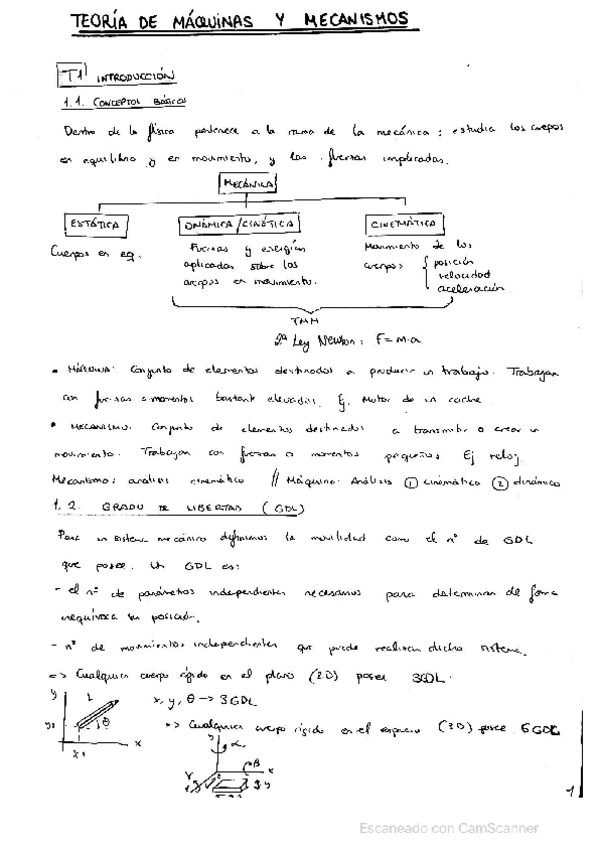 TEORÍA DE MÁQUINAS Y MECANISMOS
T1 INTRODUCCIÓN
1.1. CONCEPTOS BÁSICOS
Dentro de la física pertenece a la rama de la mecánica: estudia los cuerpos
en equilibrio y en movimiento, y las fuerzas implicadas.
MECÁNICA
ESTÁTICA
DINÁMICA/CINÉTICA
CINEMÁTICA
Cuerpos en eq.
Fuerzas y energías
aplicadas sobre los
cuerpos en movimiento.
Movimiento de los
cuerpos { posición
velocidad
aceleración
TMM
2ª Ley Newton: F=m·a
• MÁQUINA: Conjunto de elementos destinados a producir un trabajo. Trabajan
con fuerzas o momentos bastante elevados. Ej. Motor de un coche
• MECANISMO: Conjunto de elementos destinados a transmitir o crear un
movimiento. Trabajan con fuerzas o momentos pequeños Ej reloj
Mecanismo: análisis cinemático // Máquina: Análisis ① cinemático ② dinámico
1.2. GRADO DE LIBERTAD (GDL)
Para un sistema mecánico definimos la movilidad como el nº de GDL
que posee. Un GDL es:
- el nº de parámetros independientes necesarios para determinar de forma
inequívoca su posición.
- nº de movimientos independientes que puede realizar dicho sistema.
=> Cualquier cuerpo rígido en el plano (2D) posee 3GDL.
y L θ x
x, y, θ -> 3GDL
=> Cualquier cuerpo rígido en el espacio (3D) posee 6GDL
y α x β
1
Escaneado con CamScanner